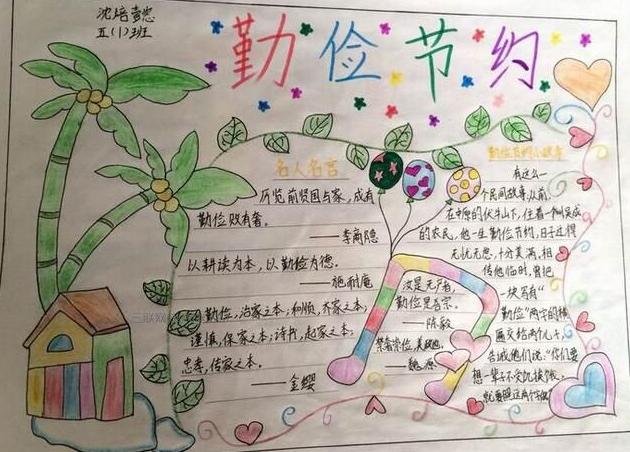 沈培壹
五(1)班
勤俭节约
名人名言
历览前贤国与家，成有
勤俭败有奢。
——李商隐
以耕读为本，以勤俭为德。
——施耐庵
勤俭，治家之本；和顺，齐家之本；
谨慎，保家之本；诗书，起家之本；
忠孝，传家之本。
——金缨
汝是无户者，
勤俭是吾宗。
——陈毅
——魏源
勤俭节约小故事
有这么一
个民间故事，从前
在中原的伏牛山下，住着一个叫吴成
的农民，他一生勤俭节约，日子过得
无忧无愁，十分美满，相
传他临时，曾把
一块写有“
勤俭”两字的横
匾交给两个儿子，
告诫他们说：“你们要
想一辈子不受饥挨饿，
就要照这两个字做